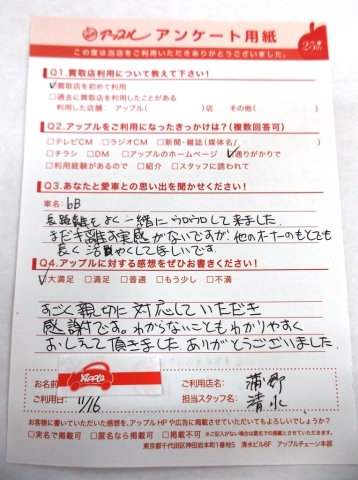 アップル アンケート用紙
25周年
この度は当店をご利用いただきありがとうございました。
Q1.買取店利用について教えて下さい！
✓買取店を初めて利用
□過去に買取店を利用したことがある
利用した店舗： アップル( )店 その他( )
Q2.アップルをご利用になったきっかけは？(複数回答可)
□テレビCM □ラジオCM □新聞・雑誌(媒体名/ )
□チラシ □DM □アップルのホームページ ✓通りがかりで
□利用経験があるので □紹介 □スタッフに誘われて
Q3.あなたと愛車との思い出を聞かせください！
車名： bB
長距離をよく一緒にウロウロして来ました。
まだ手離す実感がないですが、他のオーナーのもとでも
長く活躍してほしいです。
Q4.アップルに対する感想をぜひお書きください！
✓大満足 □満足 □普通 □もう少し □不満
すごく親切に対応していただき
感謝です。わからないこともわかりやすく
おしえて頂きました。ありがとうございました。
お名前
Apple
ご利用店名： 蒲郡
ご利用日： 11/16
担当スタッフ名： 清水
お客様に書いていただいた感想を、アップルHPや広告に掲載させていただいてもよろしいでしょうか？
□実名で掲載可 □匿名なら掲載可 □掲載不可 ※ご記入がない場合は匿名での掲載とさせていただきます。
東京都千代田区神田岩本町1番地5 清水ビル6F アップルチェーン本部